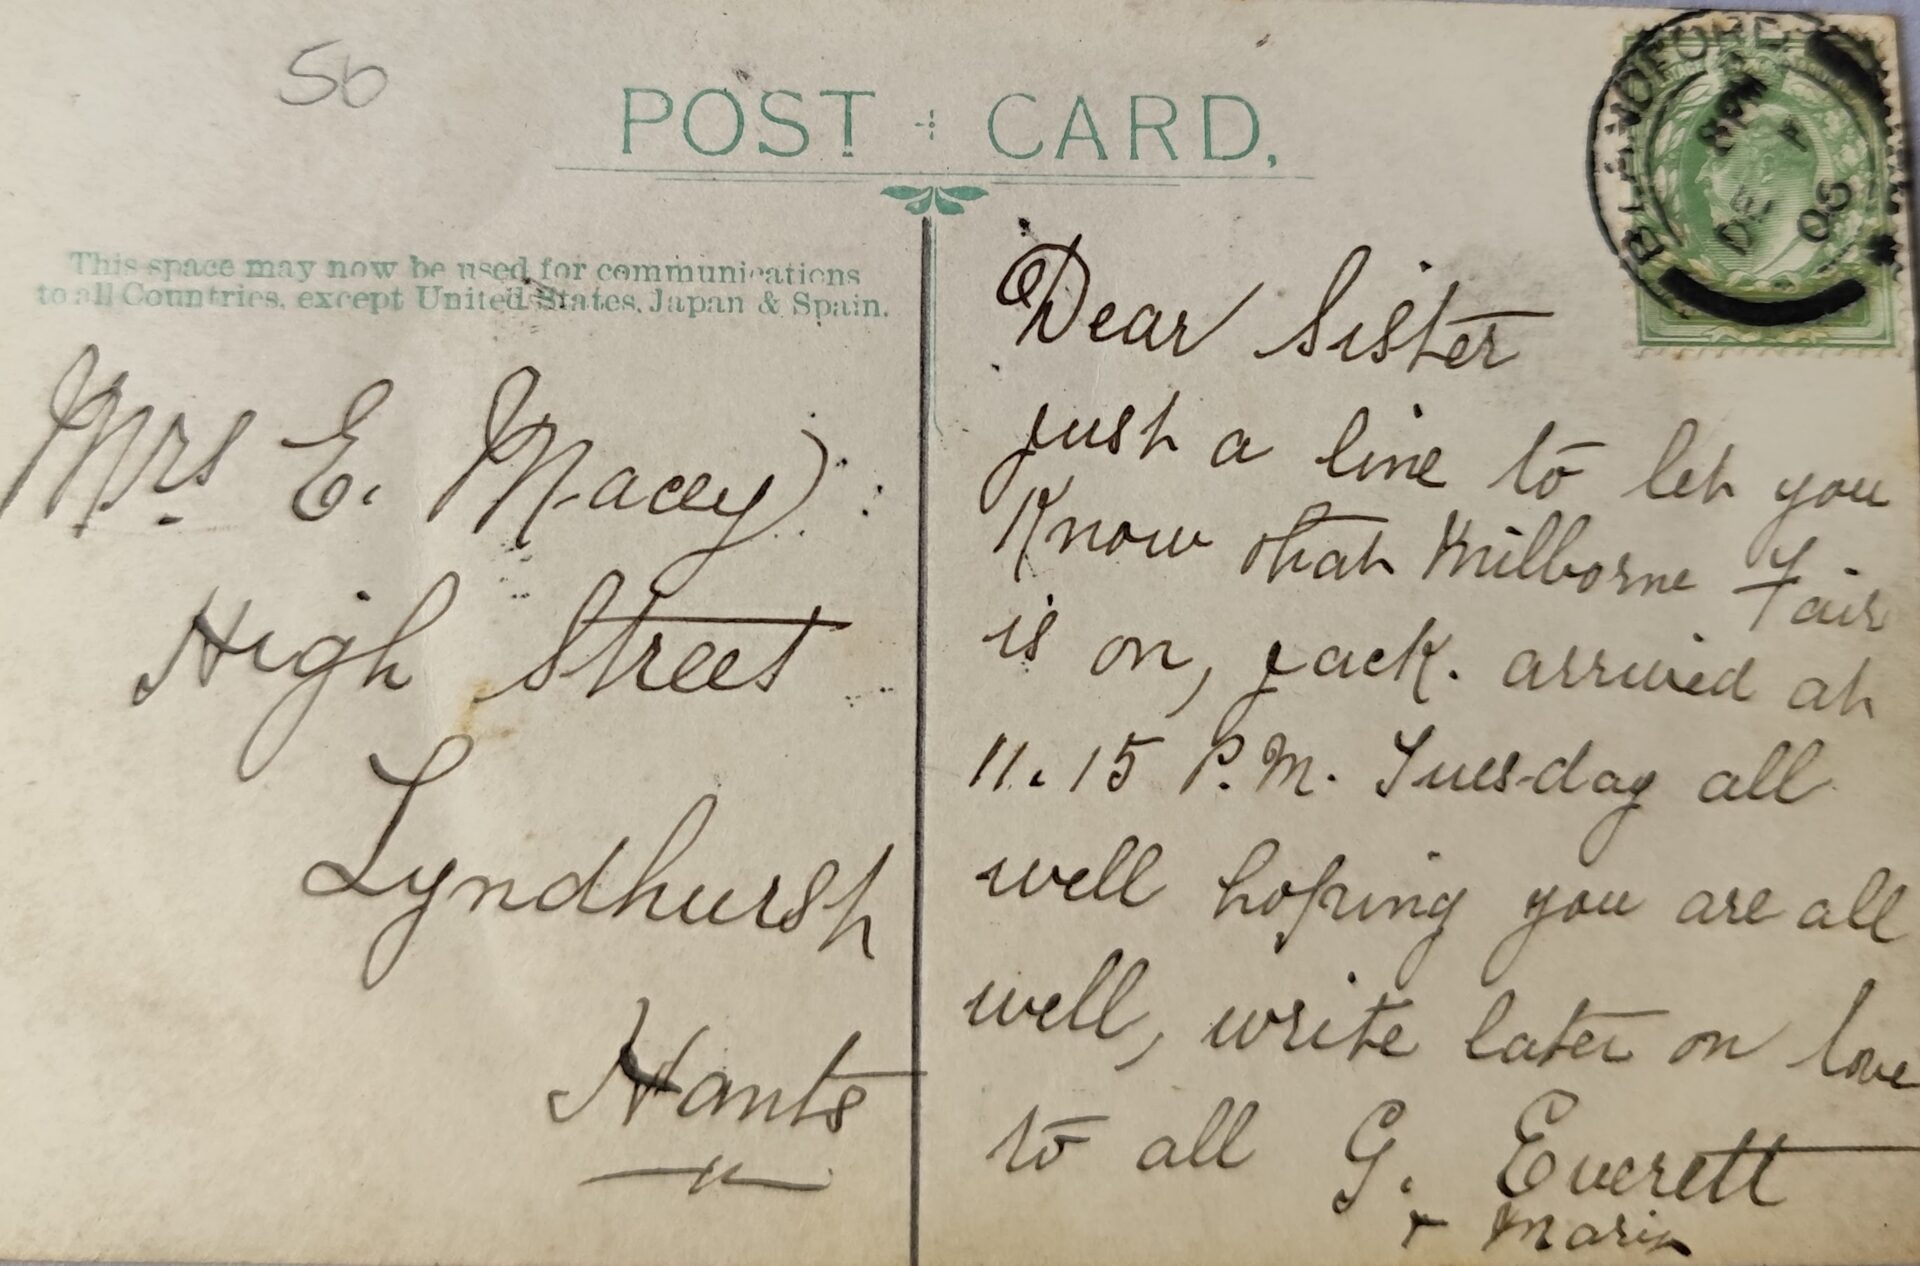 50
POST CARD.
This space may now be used for communications
to all Countries, except United States, Japan & Spain.
Mrs E. Macey
High Street
Lyndhurst
Hants
BLANDFORD
DE 
Dear Sister
just a line to let you
Know that Milborne Fair
is on, Jack. arrived at
11.15 P.M. Tuesday all
well hoping you are all
well, write later on love
to all G. Everett
+ Marie